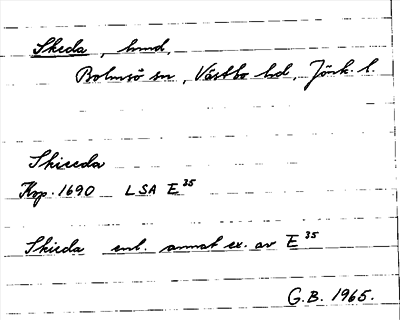 Skeda, hmd,
Bolmsö sn, Västbo hd, Jönk. l.
Skieeda
Krp. 1690 LSA E 35
Skieda enl. annat ex. av E 35
G.B. 1965.